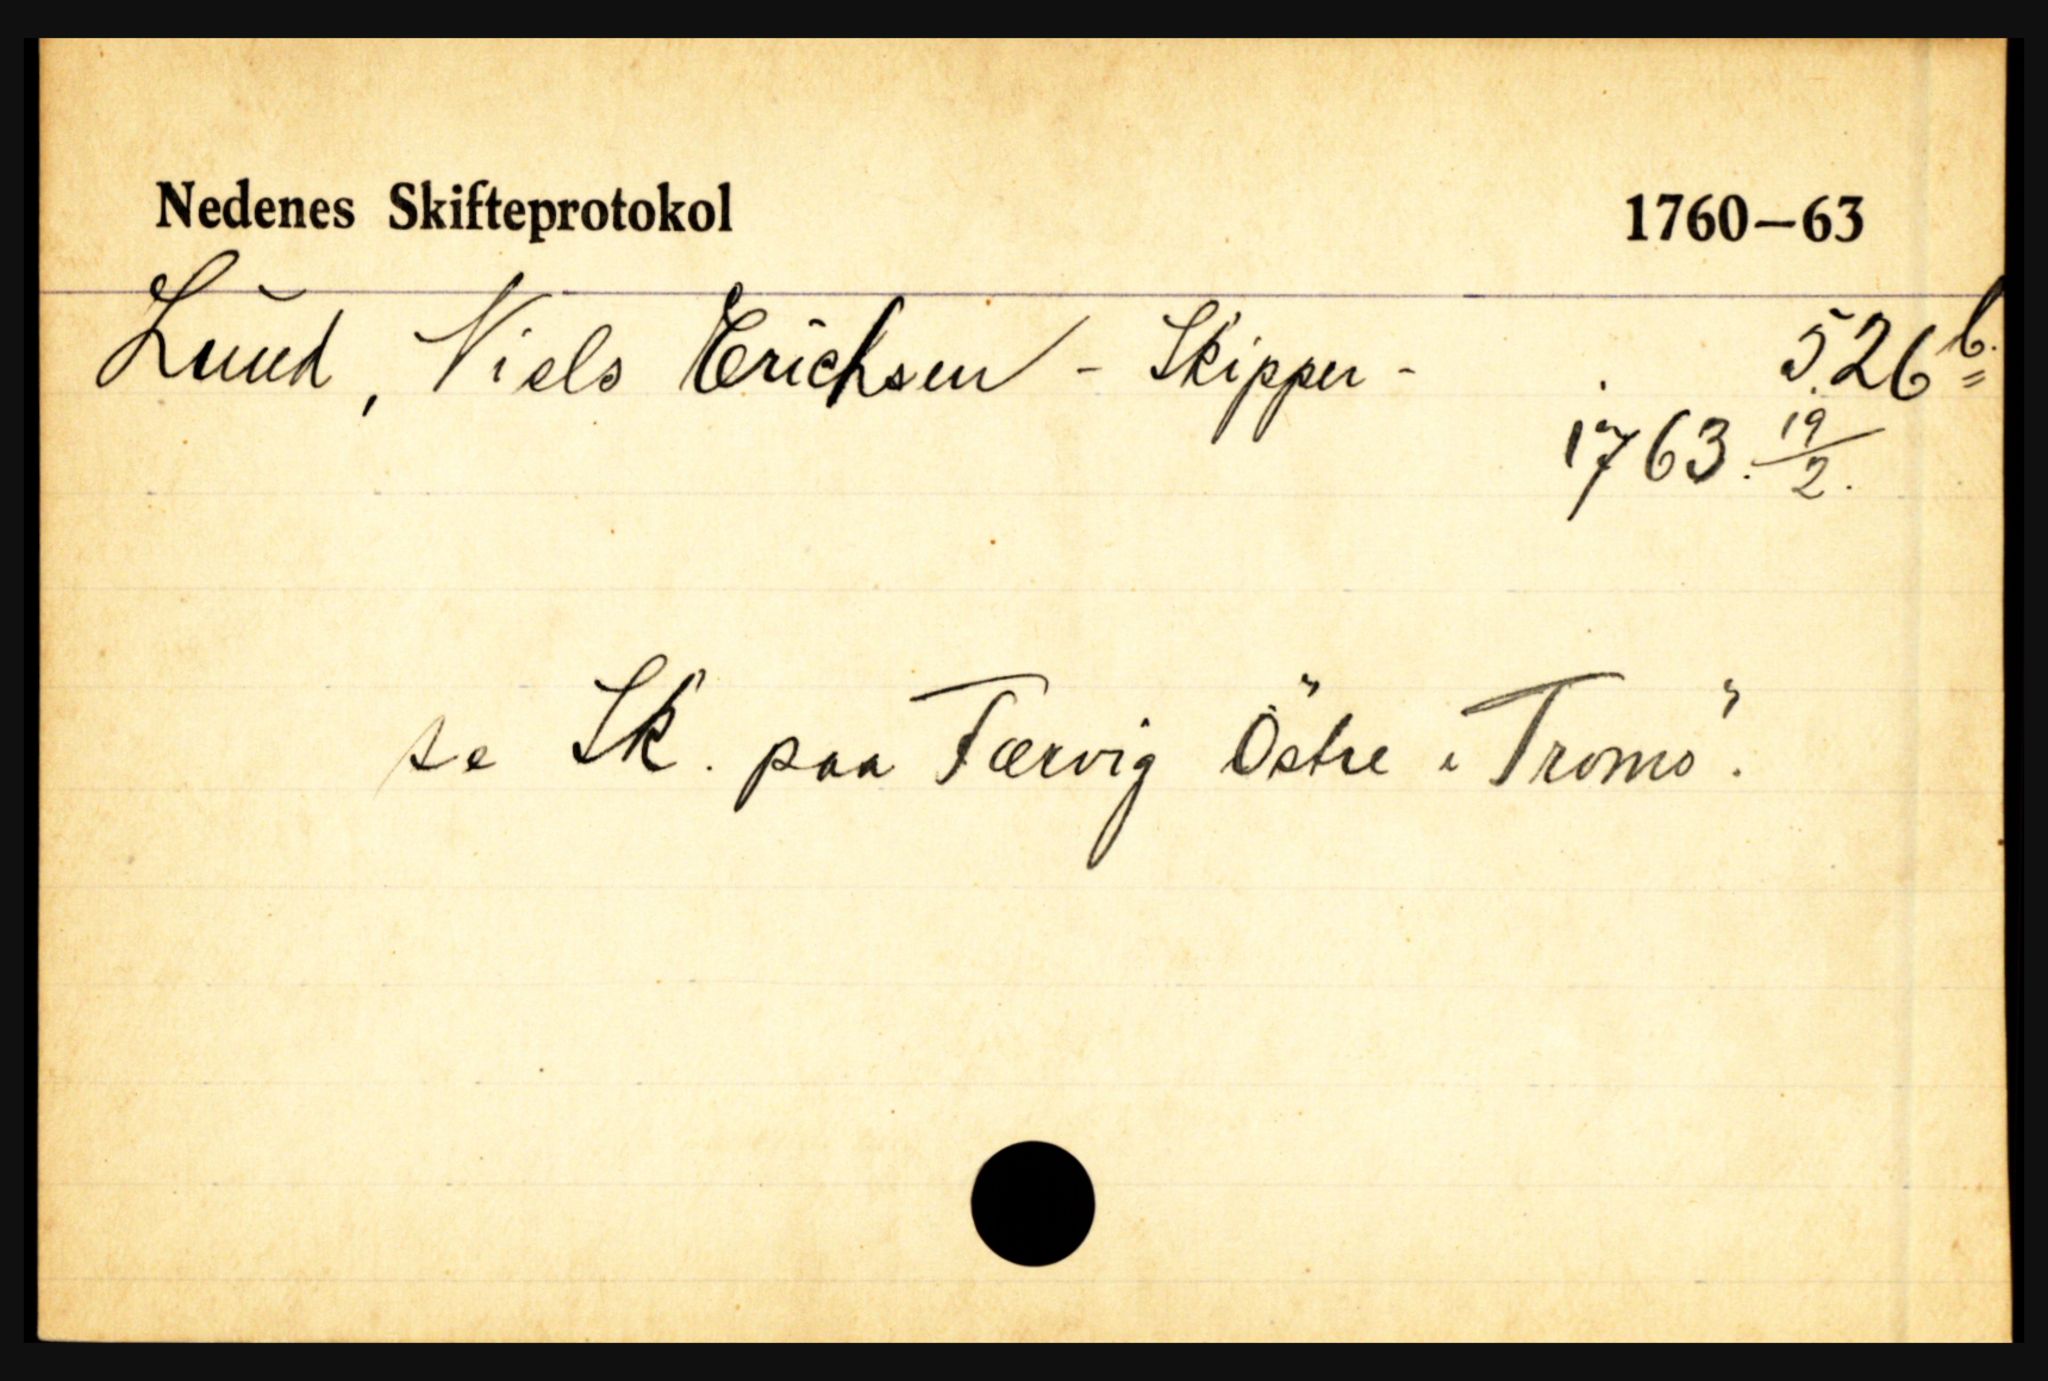 Nedenes Skifteprotokol 1760–63
Lund, Niels Erichsen - Skipper - 526 b.
1763. 19/2.
se Sk. paa Færvig Östre i Tromö.